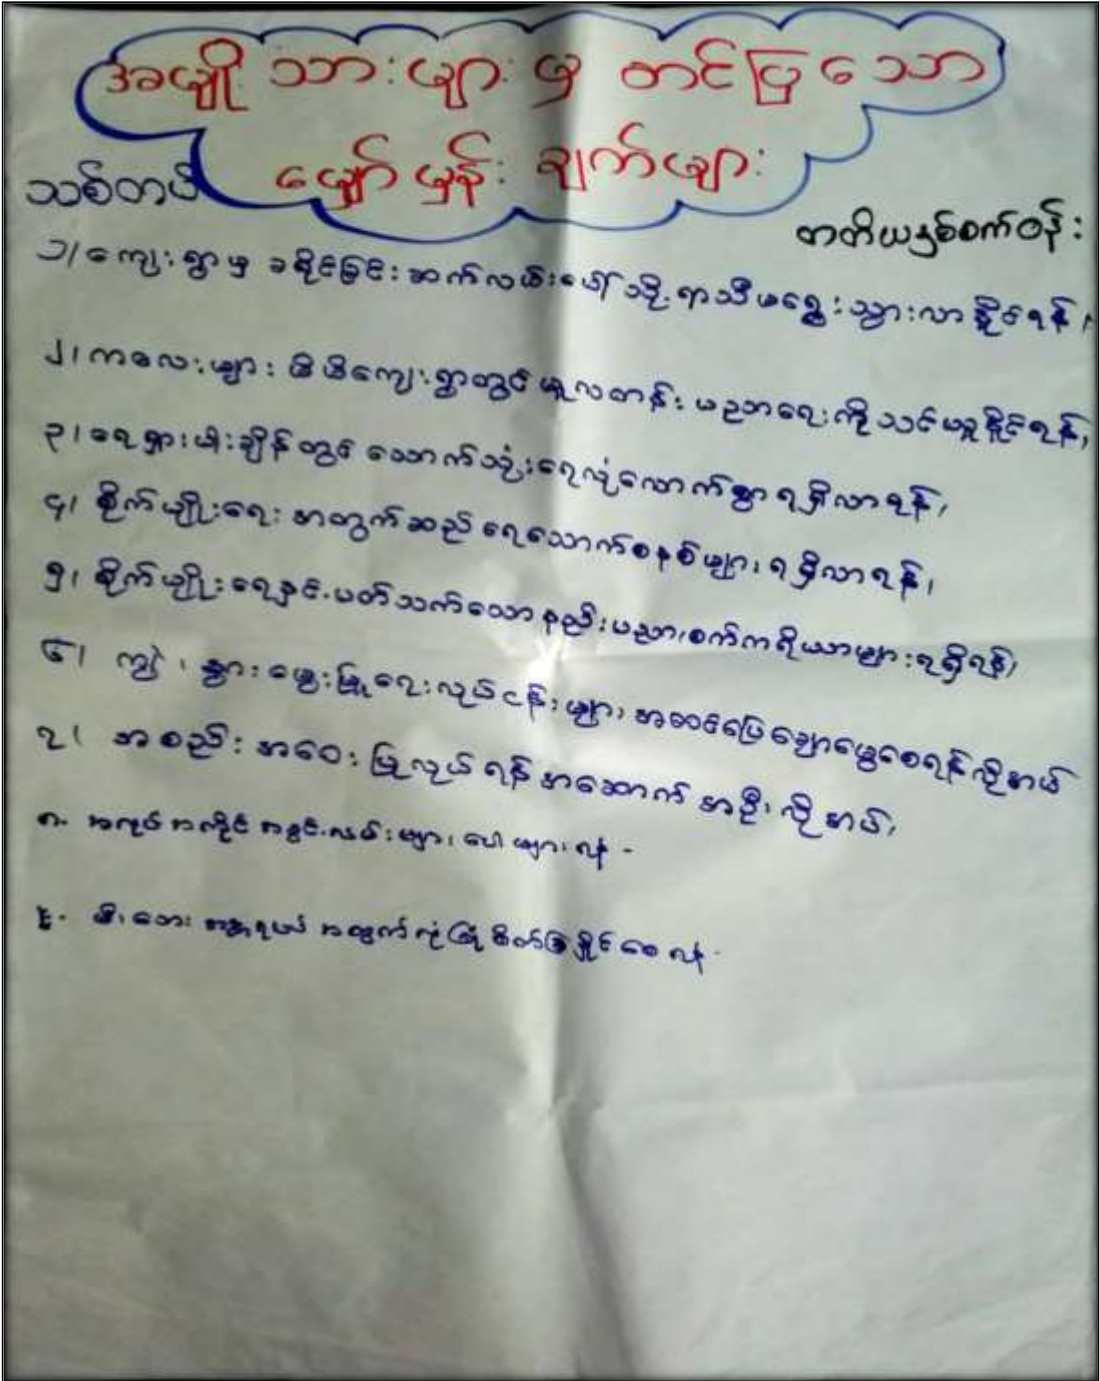 အမျိုးသားများမှ တင်ပြသော
မျှော်မှန်းချက်များ
သစ်တပ်
တတိယနှစ်စက်ဝန်း
၁/ ကျေးရွာမှ ခရိုင်ခြင်းဆက်လမ်းပေါ်သို့ ရာသီမရွေးသွားလာနိုင်ရန်၊
၂၊ ကလေးများ မိမိကျေးရွာတွင် မူလတန်း ပညာရေးကိုသင်ယူနိုင်ရန်၊
၃၊ ရေရှားပါးချိန်တွင် သောက်သုံးရေလုံလောက်စွာရရှိလာရန်၊
၄၊ စိုက်ပျိုးရေး အတွက်ဆည်ရေသောက်စနစ်များ ရရှိလာရန်၊
၅၊ စိုက်ပျိုးရေနှင့်ပတ်သက်သောနည်းပညာ၊စက်ကရိယာများရရှိရန်၊
၆၊ ကျွဲ၊ နွားမွေးမြူရေးလုပ်ငန်းများ အဆင်ပြေချောမွေ့စေရန်လိုအပ်
၇၊ အစည်းအဝေးပြုလုပ်ရန်အဆောက်အဦးလိုအပ်၊
၈. အလုပ်အကိုင်အခွင့်လမ်းများ ပေါများရန် -
၉. မီးဘေးအန္တရယ်အတွက်လုံခြုံစိတ်ချနိုင်စေရန် -